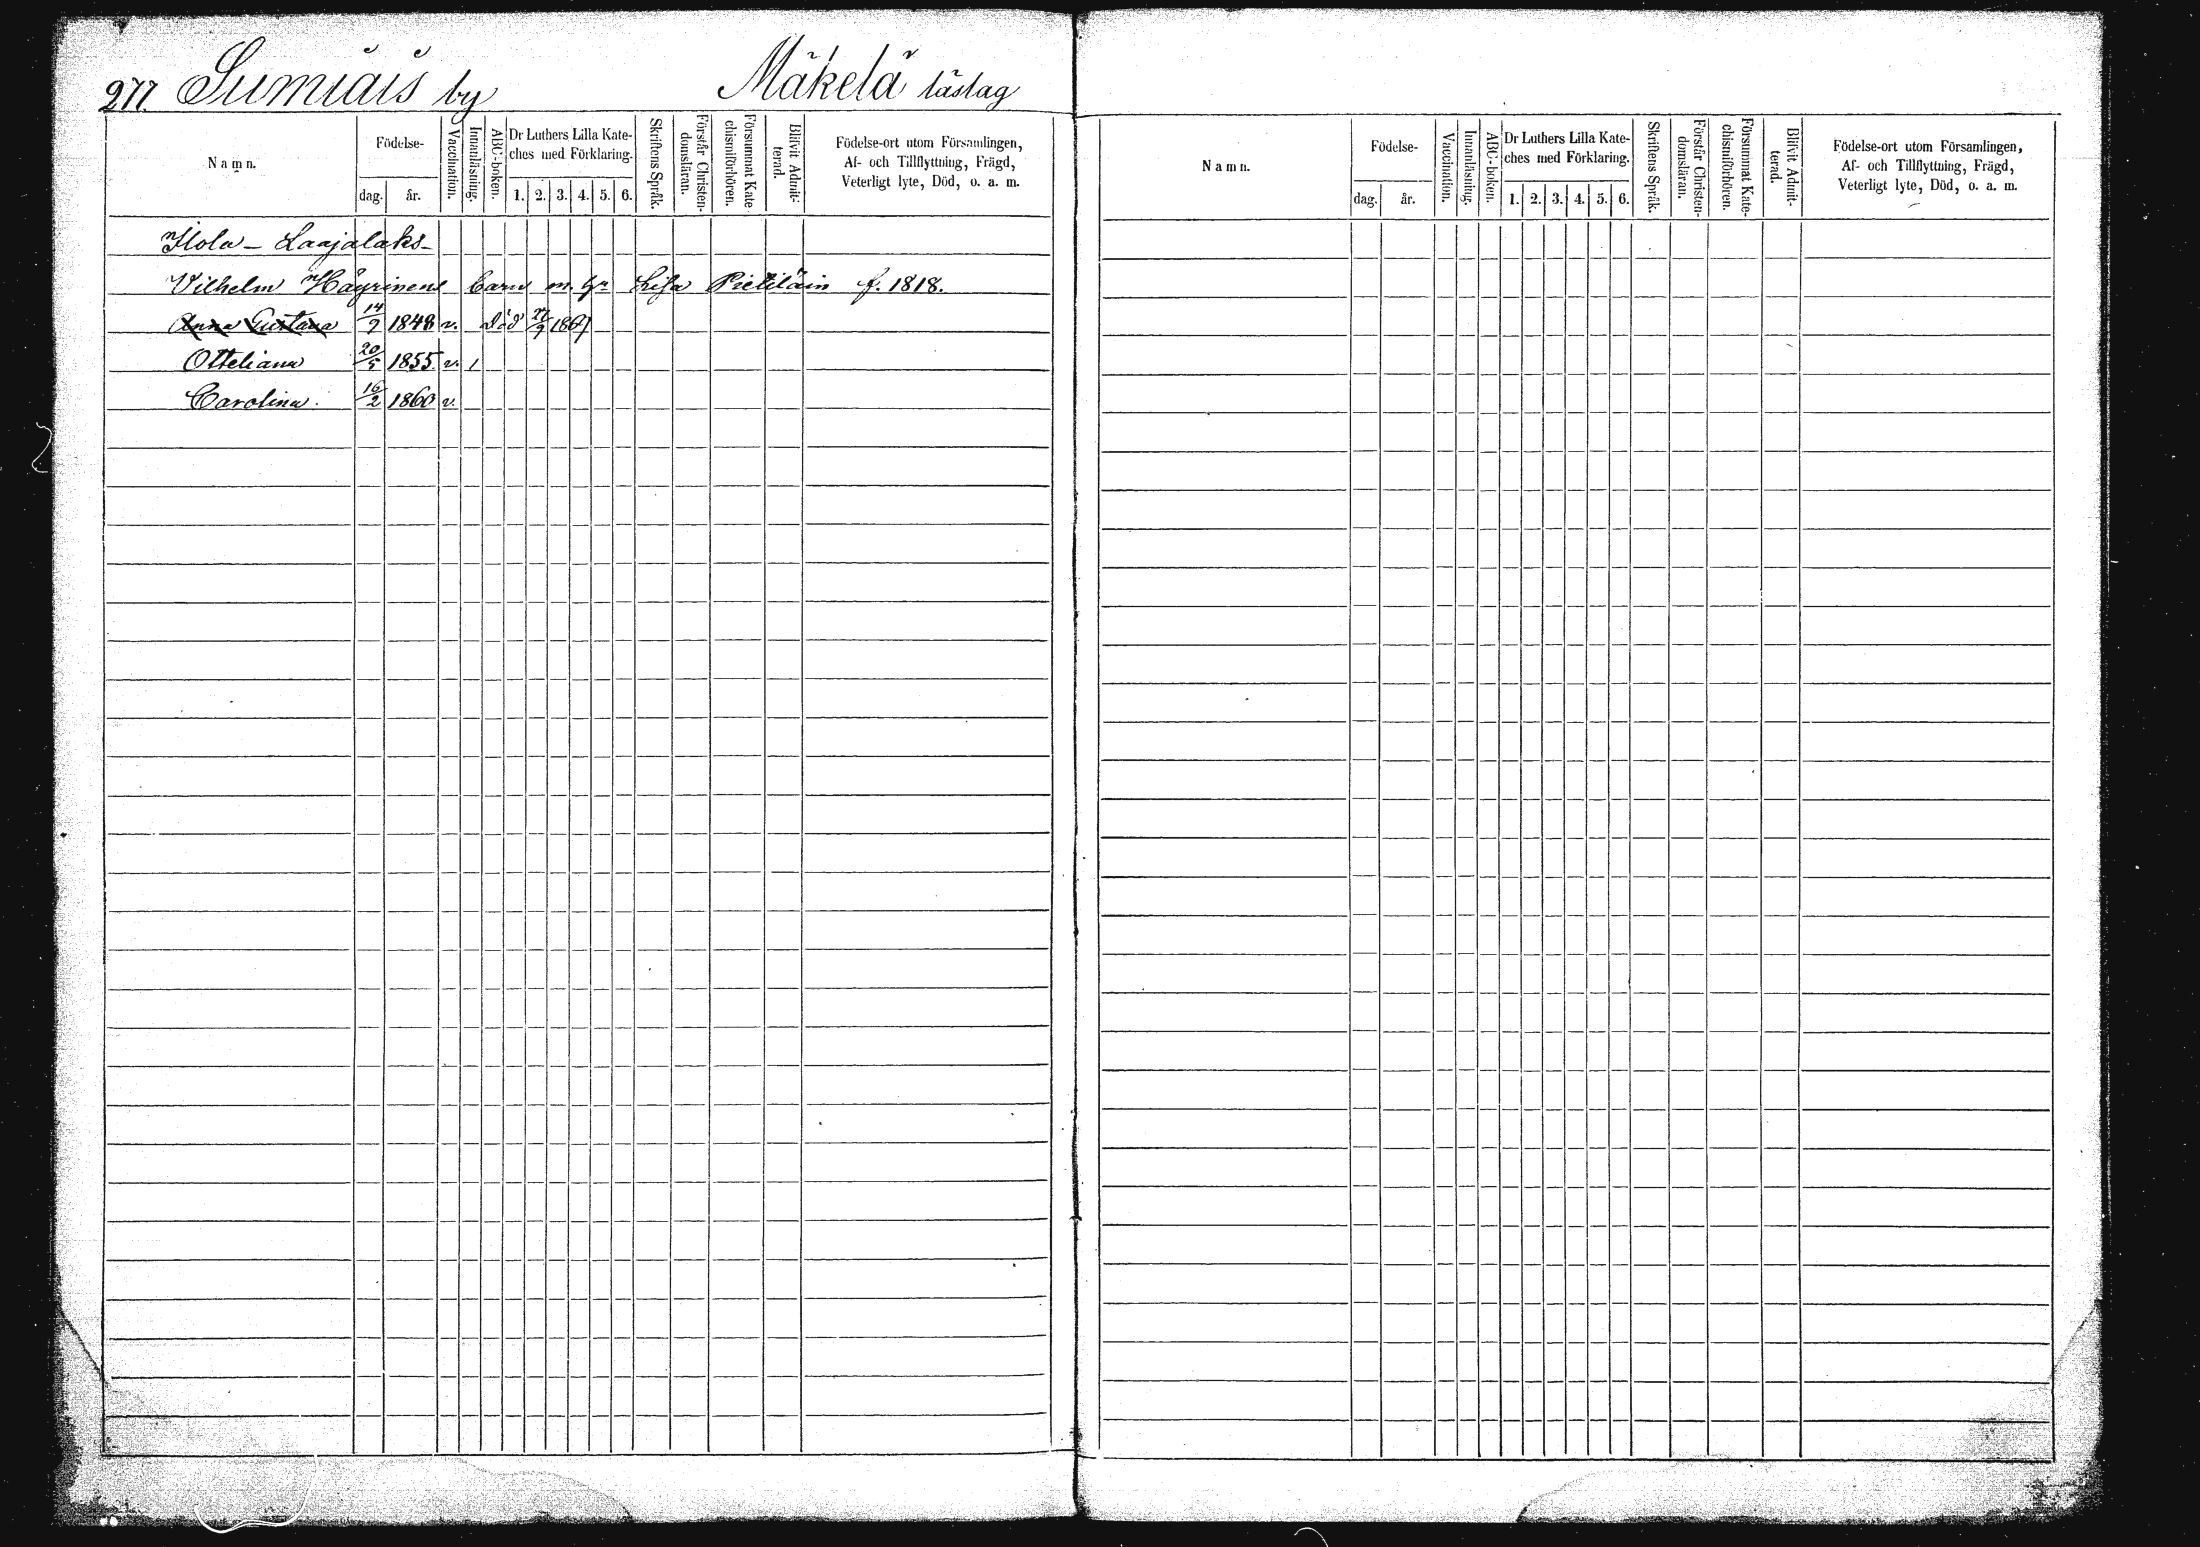 277. Sumiais by Mäkelä läslag
Namn.
Födelse-
dag. år.
Vaccination.
Innanläsning.
ABC-boken.
Dr Luthers Lilla Kate-
ches med Förklaring.
1. 2. 3. 4. 5. 6.
Skriftens Språk.
Förstår Christen-
domsläran.
Försummat Kate
chismiförhören.
Blifvit Admit-
terad.
Födelse-ort utom Församlingen,
Af- och Tillflyttning, Frägd,
Veterligt lyte, Död, o. a. m.
Ilola - Laajalaks-
Vilhelm Häyrinens barn m. Lisa Pietiläin f. 1818.
Anna Gustava 14/9 1848 v. död 27/9 1867
Otteliana 20/5 1855. v. 1
Carolina. 16/2 1860 v.
Namn.
Födelse-
dag. år.
Vaccination.
Innanläsning.
ABC-boken.
Dr Luthers Lilla Kate-
ches med Förklaring.
1. 2. 3. 4. 5. 6.
Skriftens Språk.
Förstår Christen-
domsläran.
Försummat Kate-
chismiförhören.
Blifvit Admit-
terad.
Födelse-ort utom Församlingen,
Af- och Tillflyttning, Frägd,
Veterligt lyte, Död, o. a. m.